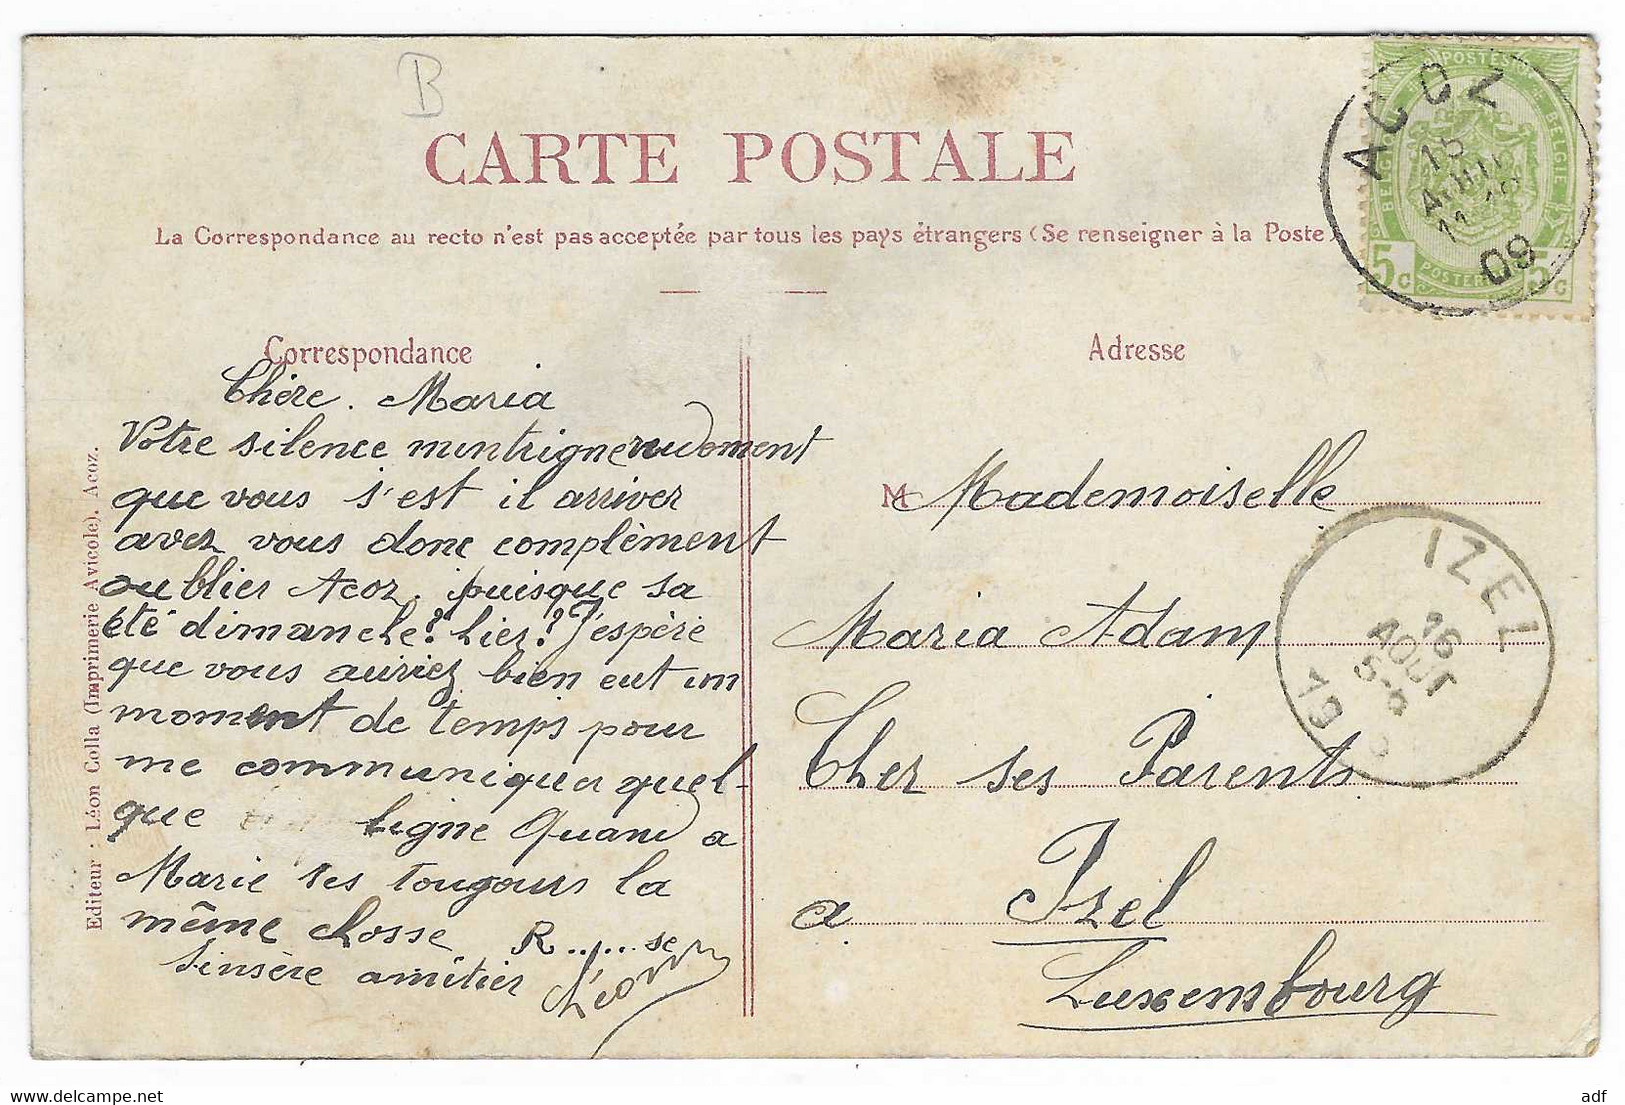 B
CARTE POSTALE
La Correspondance au recto n'est pas acceptée par tous les pays étrangers (Se renseigner à la Poste)
POSTES
BELGIE
5 c
5 c
ACOZ
11
09
Correspondance
Adresse
Chère. Maria
Votre silence mintrigne rudement
que vous s'est il arriver
avez vous donc complèment
oublier Acoz. puisque sa
été dimanche? hier? J'espère
que vous auriez bien eut un
moment de temps pour
me communiquer quel-
que ligne Quand a
Marie ses tougours la
même chosse R......se
Sinsère amitier
Léon
Editeur : Léon Colla (Imprimerie Avicole). Acoz.
M Mademoiselle
Maria Adam
Cher ses Parents
a Izel
Luxembourg
IZEL
16
AOUT
19
delcampe.net
adf